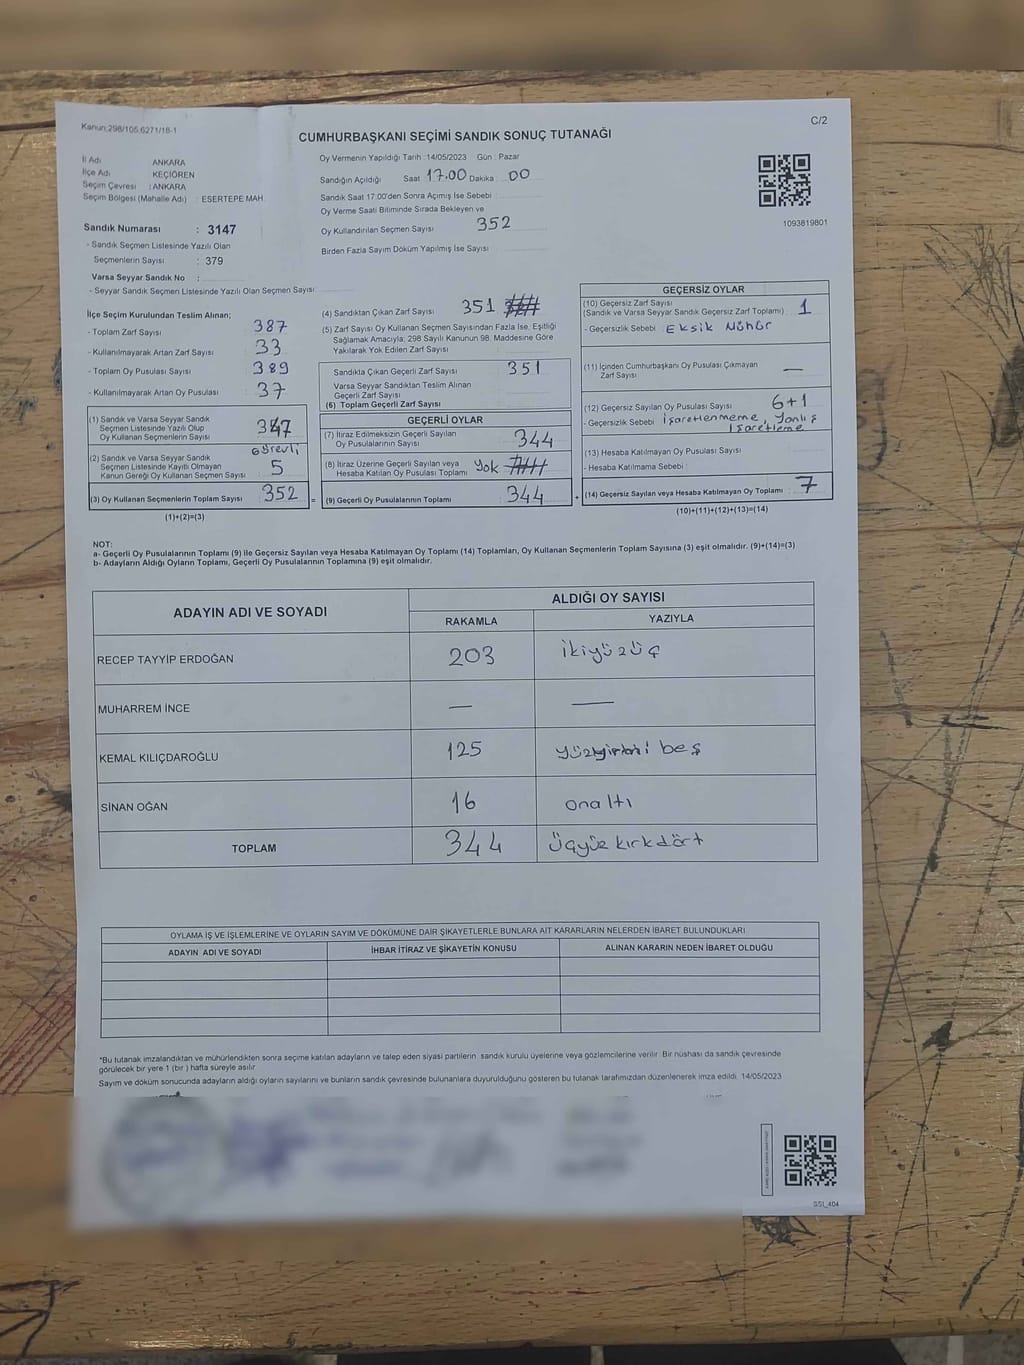 Kanun:298/105,6271/18-1
C/2
CUMHURBAŞKANI SEÇİMİ SANDIK SONUÇ TUTANAĞI
İl Adı ANKARA
İlçe Adı KEÇİÖREN
Seçim Çevresi : ANKARA
Seçim Bölgesi (Mahalle Adı) : ESERTEPE MAH.
Oy Vermenin Yapıldığı Tarih : 14/05/2023 Gün : Pazar
Sandığın Açıldığı Saat 17.00 Dakika : 00
Sandık Saat 17.00'den Sonra Açımış İse Sebebi :
Oy Verme Saati Bitiminde Sırada Bekleyen ve
Oy Kullandırılan Seçmen Sayısı 352
Birden Fazla Sayım Döküm Yapılmış İse Sayısı
1093819801
Sandık Numarası : 3147
- Sandık Seçmen Listesinde Yazılı Olan
Seçmenlerin Sayısı : 379
Varsa Seyyar Sandık No :
- Seyyar Sandık Seçmen Listesinde Yazılı Olan Seçmen Sayısı:
İlçe Seçim Kurulundan Teslim Alınan;
- Toplam Zarf Sayısı 387
- Kullanılmayarak Artan Zarf Sayısı 33
- Toplam Oy Pusulası Sayısı 389
- Kullanılmayarak Artan Oy Pusulası 37
(1) Sandık ve Varsa Seyyar Sandık
Seçmen Listesinde Yazılı Olup
Oy Kullanan Seçmenlerin Sayısı 347
(2) Sandık ve Varsa Seyyar Sandık
Seçmen Listesinde Kayıtlı Olmayan
Kanun Gereği Oy Kullanan Seçmen Sayısı 5
(3) Oy Kullanan Seçmenlerin Toplam Sayısı 352
(1)+(2)=(3)
(4) Sandıktan Çıkan Zarf Sayısı 351
(5) Zarf Sayısı Oy Kullanan Seçmen Sayısından Fazla İse, Eşitliği
Sağlamak Amacıyla; 298 Sayılı Kanunun 98. Maddesine Göre
Yakılarak Yok Edilen Zarf Sayısı
Sandıkta Çıkan Geçerli Zarf Sayısı 351
Varsa Seyyar Sandıktan Teslim Alınan
Geçerli Zarf Sayısı
(6) Toplam Geçerli Zarf Sayısı
GEÇERLİ OYLAR
(7) İtiraz Edilmeksizin Geçerli Sayılan
Oy Pusulalarının Sayısı 344
(8) İtiraz Üzerine Geçerli Sayılan veya
Hesaba Katılan Oy Pusulası Toplamı Yok
= (9) Geçerli Oy Pusulalarının Toplamı 344
GEÇERSİZ OYLAR
(10) Geçersiz Zarf Sayısı
(Sandık ve Varsa Seyyar Sandık Geçersiz Zarf Toplamı) 1
- Geçersizlik Sebebi : Eksik Mühür
(11) İçinden Cumhurbaşkanı Oy Pusulası Çıkmayan
Zarf Sayısı —
(12) Geçersiz Sayılan Oy Pusulası Sayısı 6+1
- Geçersizlik Sebebi işaretlenmeme, Yanlış
işaretleme
(13) Hesaba Katılmayan Oy Pusulası Sayısı
- Hesaba Katılmama Sebebi
+ (14) Geçersiz Sayılan veya Hesaba Katılmayan Oy Toplamı 7
(10)+(11)+(12)+(13)=(14)
NOT:
a- Geçerli Oy Pusulalarının Toplamı (9) ile Geçersiz Sayılan veya Hesaba Katılmayan Oy Toplamı (14) Toplamları, Oy Kullanan Seçmenlerin Toplam Sayısına (3) eşit olmalıdır. (9)+(14)=(3)
b- Adayların Aldığı Oyların Toplamı, Geçerli Oy Pusulalarının Toplamına (9) eşit olmalıdır.
ADAYIN ADI VE SOYADI
ALDIĞI OY SAYISI
RAKAMLA YAZIYLA
RECEP TAYYİP ERDOĞAN 203 ikiyüzüç
MUHARREM İNCE — —
KEMAL KILIÇDAROĞLU 125 yüzyirmi beş
SİNAN OĞAN 16 onaltı
TOPLAM 344 üçyüzkırkdört
OYLAMA İŞ VE İŞLEMLERİNE VE OYLARIN SAYIM VE DÖKÜMÜNE DAİR ŞİKAYETLERLE BUNLARA AİT KARARLARIN NELERDEN İBARET BULUNDUKLARI
ADAYIN ADI VE SOYADI İHBAR İTİRAZ VE ŞİKAYETİN KONUSU ALINAN KARARIN NEDEN İBARET OLDUĞU
*Bu tutanak imzalandıktan ve mühürlendikten sonra seçime katılan adayların ve talep eden siyasi partilerin sandık kurulu üyelerine veya gözlemcilerine verilir. Bir nüshası da sandık çevresinde
görülecek bir yere 1 (bir ) hafta süreyle asılır.
Sayım ve döküm sonucunda adayların aldığı oyların sayılarını ve bunların sandık çevresinde bulunanlara duyurulduğunu gösteren bu tutanak tarafımızdan düzenlenerek imza edildi. 14/05/2023
S51_404